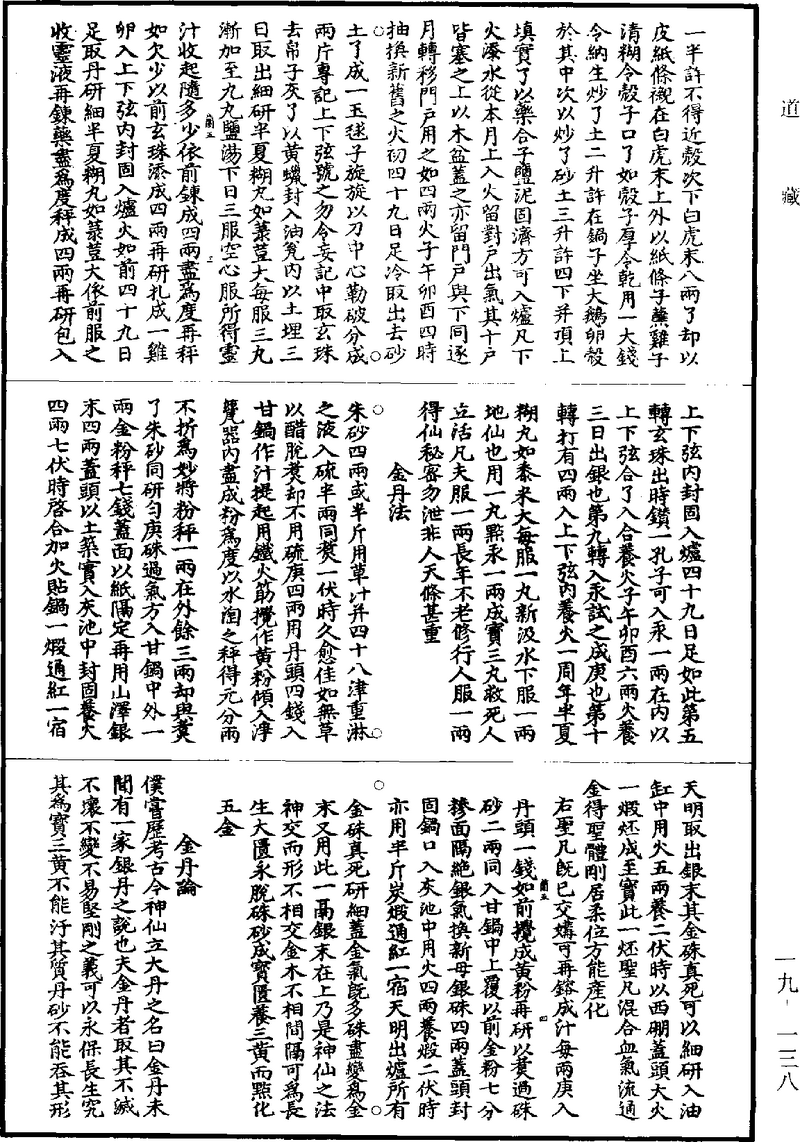 道藏
一九-一三八
一半許不得近殼次下白虎末八兩了却以
皮紙條襯在白虎末上外以紙條子蘸雞子
清糊令殼子口了如殼子厚令乾用一大錢
令納生炒了土二升許在鍋子坐大鵝卵殼
於其中次以炒了砂土三升許四下并頂上
填實了以藥合子鹽泥固濟方可入爐凡下
火潑水從本月上入火留對戶出氣其十戶
皆塞之上以木盆蓋之亦留門戶與下同逐
月轉移門戶用之如四兩火子午卯酉四時
抽換新舊之火初四十九日足冷取出去砂
土了成一玉毬子旋旋以刀中心勒破分成
兩片專記上下弦號之勿令妄記中取玄珠
去帛子灰了以黃蠟封入油瓮內以土埋三
日取出細研半夏糊丸如菉荳大每服三丸
漸加至九丸鹽湯下日三服空心服所得靈
汁收起隨多少依前鍊成四兩盡為度再秤
如欠少以前玄珠添成四兩再研扎成一雞
卵入上下弦內封固入爐火如前四十九日
足取丹研細半夏糊丸如菉荳大依前服之
收靈液再鍊藥盡為度秤成四兩再研包入
上下弦內封固入爐四十九日足如此第五
轉玄珠出時鑽一孔子可入汞一兩在內以
上下弦合了入合養火子午卯酉六兩火養
三日出銀也第九轉入汞試之成庚也第十
轉打有四兩入上下弦內養火一周年半夏
糊丸如黍米大每服一丸新汲水下服一兩
地仙也用一丸點汞一兩成寶三丸救死人
立活凡夫服一兩長年不老修行人服一兩
得仙秘密勿泄非人天條甚重
金丹法
朱砂四兩或半斤用草汁并四十八津重淋
之液入硫半兩同煑一伏時久愈佳如無草
以醋脫煑却不用硫庚四兩用丹頭四錢入
甘鍋作汁提起用鐵火筋攪作黃粉傾入淨
甆器內盡成粉為度以水淘之秤得元分兩
不折為妙將粉秤一兩在外餘三兩却與煑
了朱砂同研勻庚硃過氣方入甘鍋中外一
兩金粉秤七錢蓋面以紙隔定再用山澤銀
末四兩蓋頭以土築實入灰池中封固養火
四兩七伏時啓合加火貼鍋一煅通紅一宿
天明取出銀末其金硃真死可以細研入油
缸中用火五兩養二伏時以西硼蓋頭大火
一煅坯成至寶此一坯聖凡混合血氣流通
金得聖體剛居柔位方能産化
右聖凡既已交媾可再鎔成汁每兩庚入
丹頭一錢如前攪成黃粉再研以煑過硃
砂二兩同入甘鍋中上覆以前金粉七分
糝面隔絕銀氣換新母銀硃四兩蓋頭封
固鍋口入灰池中用火四兩養煅二伏時
亦用半斤炭煅通紅一宿天明出爐所有
金硃真死研細蓋金氣既多硃盡變為金
末又用此一鬲銀末在上乃是神仙之法
神交而形不相交金木不相間隔可為長
生大匱永脫硃砂成寶匱養三黃而點化
五金
金丹論
僕嘗歷考古今神仙立大丹之名曰金丹未
聞有一家銀丹之說也夫金丹者取其不滅
不壞不變不易堅剛之義可以永保長生究
其為寶三黃不能汙其質丹砂不能吞其形